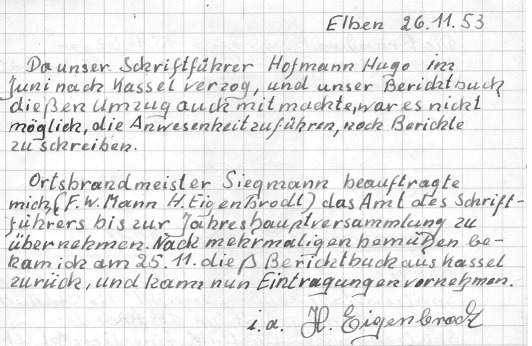 Elben 26.11.53
Da unser Schriftführer Hofmann Hugo im
Juni nach Kassel verzog, und unser Berichtbuch
dießen Umzug auch mit machte, war es nicht
möglich, die Anwesenheit zu führen, noch Berichte
zu schreiben.
Ortsbrandmeister Siegmann beauftragte
mich, (F.W. Mann H. Eigenbrodt) das Amt des Schrift-
führers bis zur Jahreshauptversammlung zu
übernehmen. Nach mehrmaligen bemühen be-
kam ich am 25.11. dieß Berichtbuch aus Kassel
zurück, und kann nun Eintragungen vornehmen.
i.a. H. Eigenbrodt